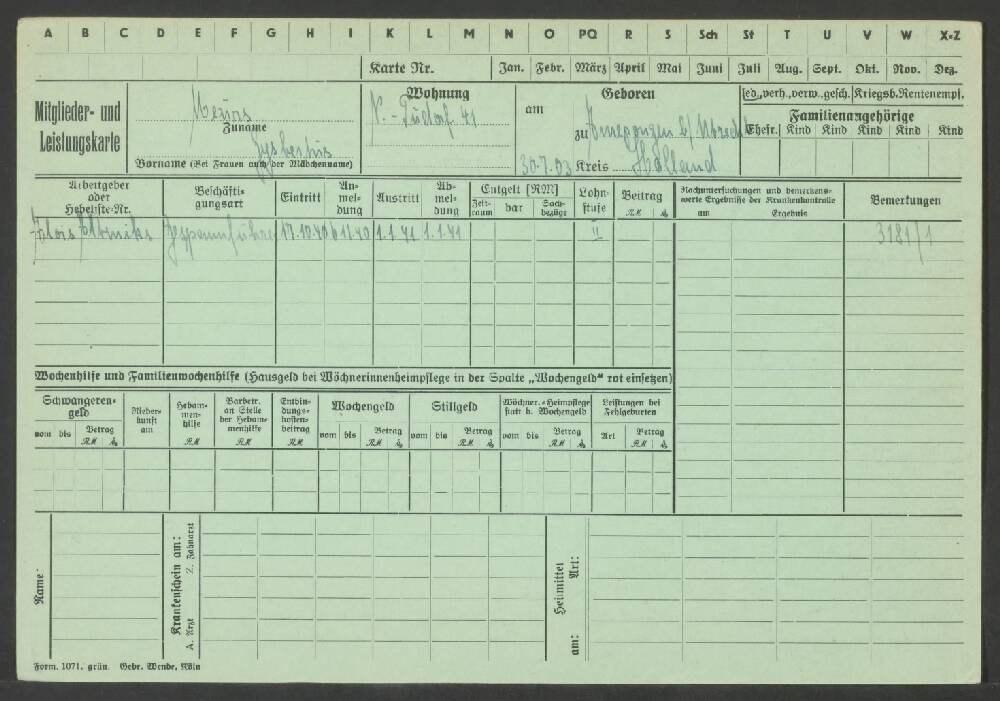 A B C D E F G H I K L M N O PQ R S Sch St T U V W X=Z
Karte Nr. Jan. Febr. März April Mai Juni Juli Aug. Sept. Okt. Nov. Dez.
Mitglieder- und
Leistungskarte
Meurs
Zuname
Gysbertus
Vorname (Bei Frauen auch der Mädchenname)
Wohnung
41
Geboren
am
zu
Holland
30.7.03 Kreis
led., verh., verw., gesch. Kriegsb. Rentenempf.
Familienangehörige
Ehefr. Kind Kind Kind Kind Kind
Arbeitgeber
oder
Hebeliste-Nr.
Beschäfti-
gungsart
Eintritt
An-
mel-
dung
Austritt
Ab-
mel-
dung
Entgelt [RM]
Zeit-
raum
bar
Sach-
bezüge
Lohn-
stufe
Beitrag
RM
Nachuntersuchungen und bemerkens-
werte Ergebnisse der Krankenkontrolle
am Ergebnis
Bemerkungen
Alois 17.10.40 6.11.40 1.1.41 1.1.41 II 3181/1
Wochenhilfe und Familienwochenhilfe (Hausgeld bei Wöchnerinnenheimpflege in der Spalte „Wochengeld“ rot einsetzen)
Schwangeren-
geld
vom bis Betrag
RM
Nieder-
kunft
am
Hebam-
men-
hilfe
RM
Barbetr.
an Stelle
der Hebam-
menhilfe
RM
Entbin-
dungs-
kosten-
beitrag
RM
Wochengeld
vom bis Betrag
RM
Stillgeld
vom bis Betrag
RM
Wöchner.-Heimpflege
statt d. Wochengeld
vom bis Betrag
RM
Leistungen bei
Fehlgeburten
Art Betrag
RM
Name
Krankenschein am:
A. Arzt Z. Zahnarzt
Heilmittel
am: Art:
Form. 1071. grün. Gebr. Wende, Wien